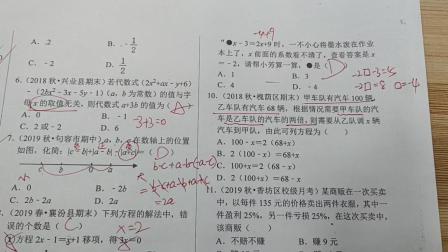 A. 2
B. -1/2
C. -2
D. 1/2
6. (2018 秋·兴业县期末) 若代数式 (2x²+ax-y+6)
-(2bx²-3x-5y-1) (a, b 为常数) 的值与字
母 x 的取值无关, 则代数式 a+3b 的值为 (
A. 0
B. -1
C. 2 或 -2
D. 6
-3+3=0
7. (2019 秋·句容市期中) a, b, c 在数轴上的位置
如图, 化简: |c-b|+|a-b|-|a+c|=
c b 0 a
A. 0
B. -2b
C. -2c
D. 2a
=2a
8. (2019 春·襄汾县期末) 下列方程的解法中, 错
误的个数是 (
①方程 2x-1=x+1 移项, 得 3x=0
x=2
-x+9
●x-3=2x+9 时, 一不小心将墨水泼在作业
本上了, x 前面的系数看不清了, 查看答案是 x
=-2, 请帮小芳算一算, ●是 (
A. 1
B. -1
C. 4
D. -4
10. (2018 秋·槐荫区期末) 甲车队有汽车 100 辆,
乙车队有汽车 68 辆, 根据情况需要甲车队的汽
车是乙车队的汽车的两倍, 则需要从乙队调 x 辆
汽车到甲队, 由此可列方程为 (
A. 100-x=2(68+x)
B. 2(100-x)=68+x
C. 100+x=2(68-x)
D. 2(100+x)=68-x
11. (2019 秋·香坊区校级月考) 某商贩在一次买卖
中, 以每件 135 元的价格卖出两件衣服, 其中一
件盈利 25%, 另一件亏损 25%, 在这次买卖中,
该商贩 (
A. 不赔不赚
B. 赚 9 元